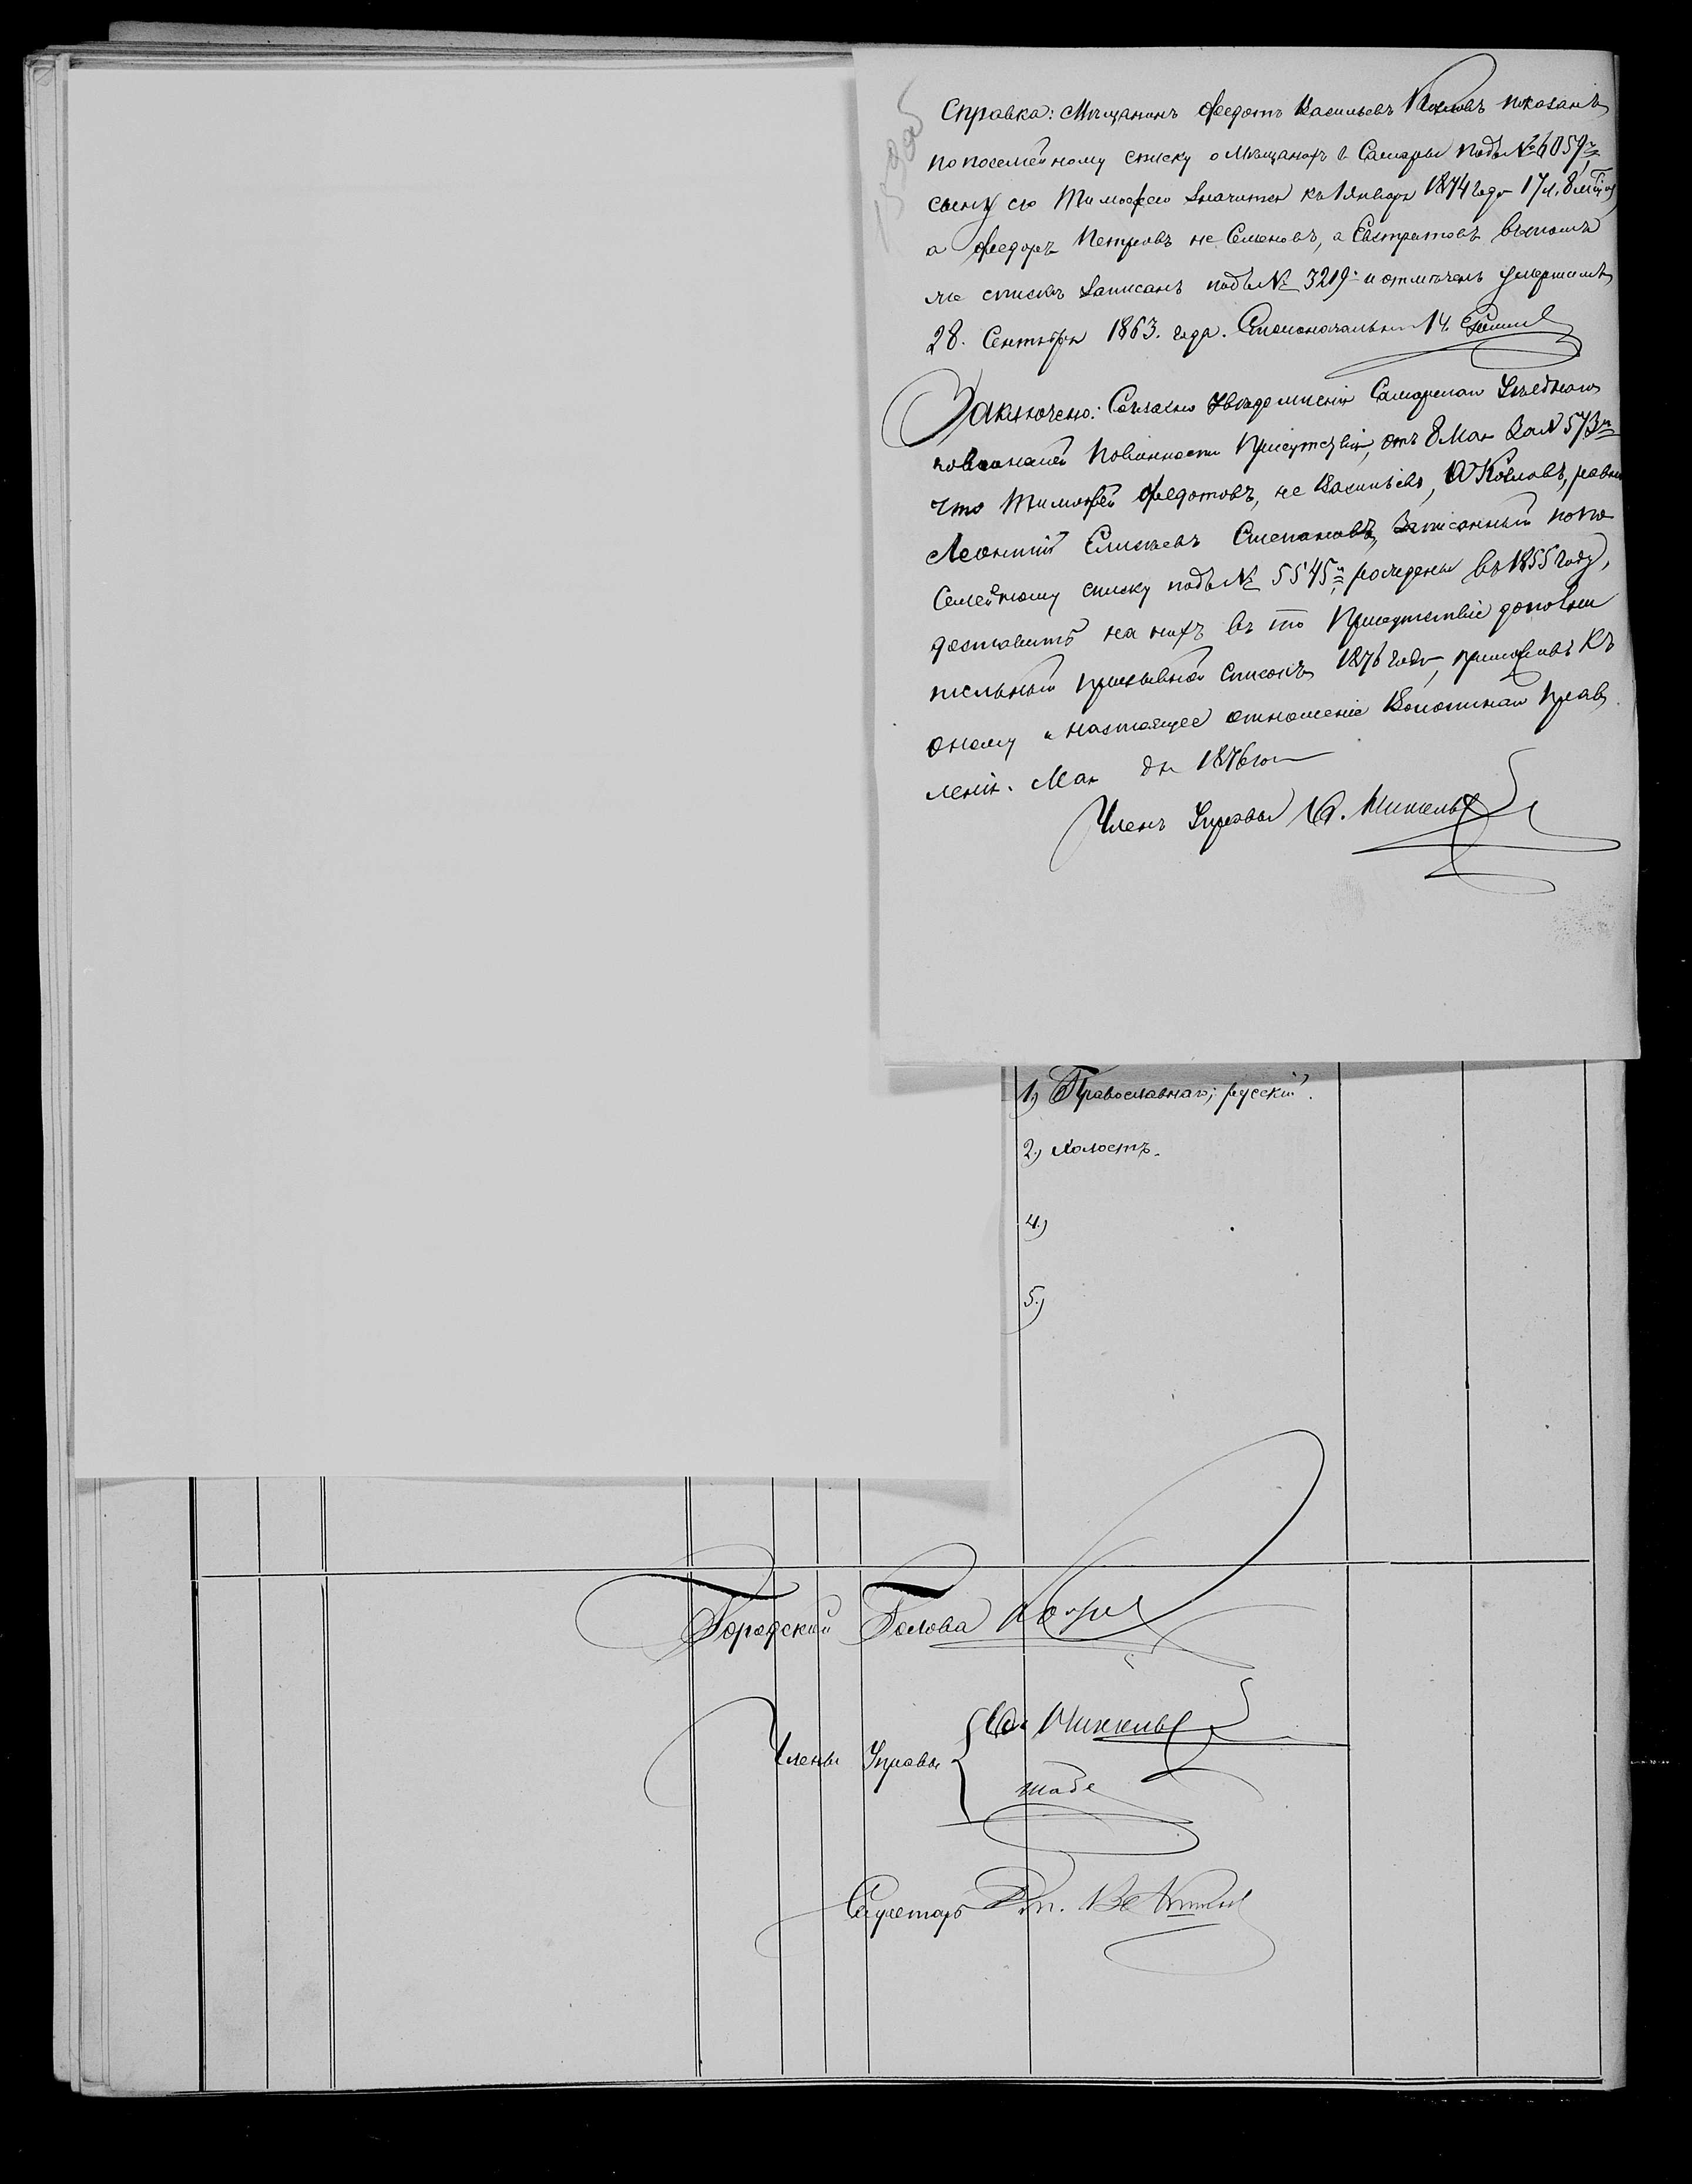 Справка: Мѣщанинъ Федотъ Васильевъ Козловъ показанъ
по посемейному списку о мѣщанахъ г. Самары подъ № 6059,
сыну его Тимофею значится къ 1 Января 1874 года 17 л. 8 м.
а Федоръ Петровъ не Семеновъ, а Евстратовъ въ томъ
же спискѣ записанъ подъ № 3219 и отмѣченъ умершимъ
28. Сентября 1863. года. Столоначальникъ
Заключено: Согласно увѣдомленія Самарскаго Уѣзднаго
по воинской повинности Присутствія, отъ 8 Мая за № 573
что Тимофей Федотовъ, не Васильевъ, Козловъ, равно
Леонтій Елисѣевъ Степановъ, записанный по по
семейному списку подъ № 5545, рождены въ 1855 году,
доставить на нихъ въ то Присутствіе дополни
тельный призывной списокъ 1876 года, приложивъ къ
оному и настоящее отношеніе Волостнаго Прав
ленія. Мая дня 1876 года
Членъ Управы
1) Православнаго; русскій.
2) холостъ.
4)
5)
Городской Голова
Члены Управы
Секретарь